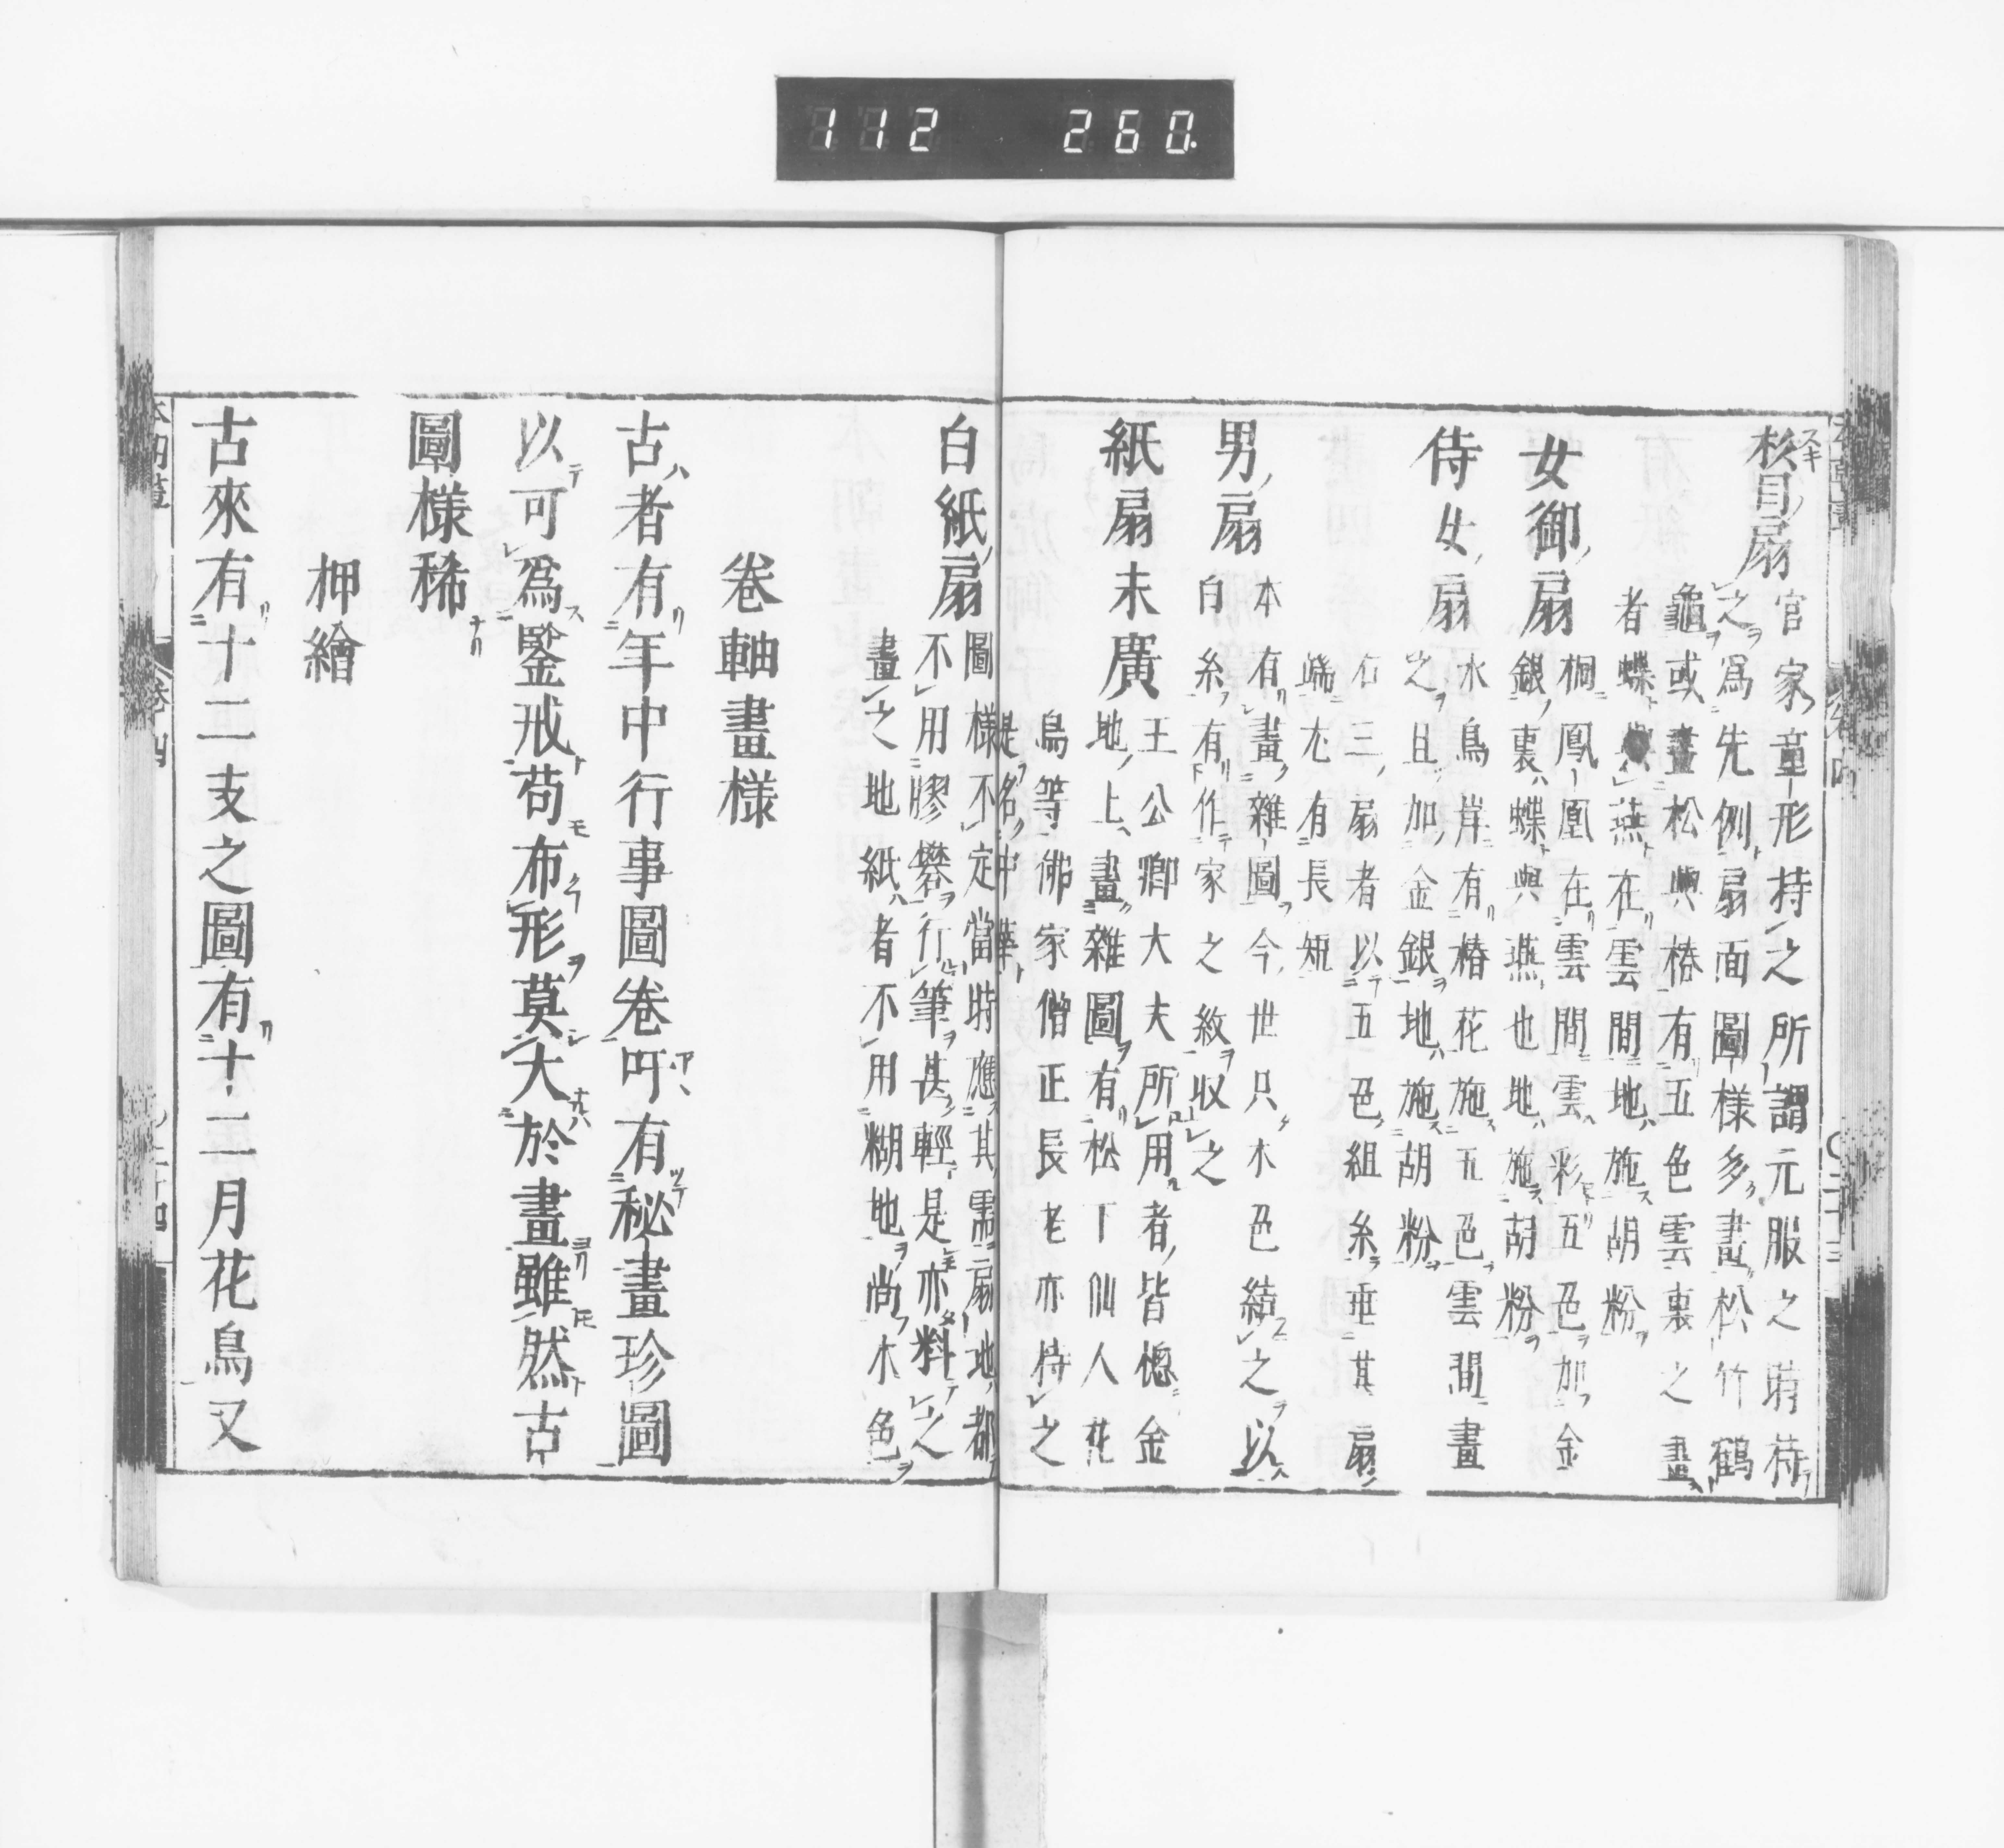 112 260.
杉目扇
官家童形持之所謂元服之時持
之爲先例扇面圖樣多畫松竹鶴
龜或畫松與椿有五色雲裏之畫
者蝶與燕在雲間地施胡粉
女御扇
桐鳳凰在雲間雲彩五色加金
銀裏蝶與燕也地施胡粉
侍女扇
水鳥岸有椿花施五色雲間畫
之且加金銀地施胡粉
右三扇者以五色組糸垂其扇
端尤有長短
男扇
本有畫雜圖今世只木色結之以
白糸有作家之紋收之
紙扇末廣
王公卿大夫所用者皆
地上畫雜圖有松下仙人花
鳥等佛家僧正長老亦持之
是名中華
白紙扇
圖樣不定當時應其需扇地都
不用膠礬行筆甚輕是亦料之
畫之地紙者不用糊地尚木色
卷軸畫樣
古者有年中行事圖卷吁有秘畫珍圖
以可爲鑒戒苟布形莫大於畫雖然古
圖樣稀
押繪
古來有十二支之圖有十二月花鳥又
卷四